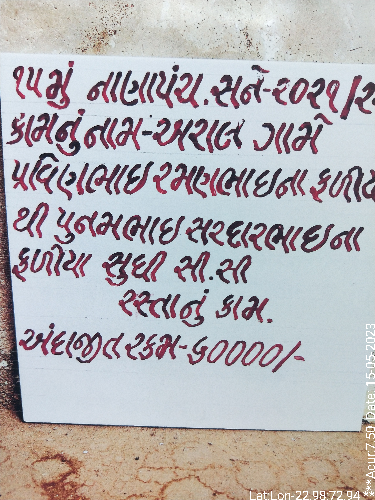 ૧૫મું નાણાપંચ.સને-૨૦૨૧/૨
કામનું નામ-અરાલ ગામે
પ્રવિણભાઇ રમણભાઇના ફળીયા
થી પુનમભાઇ સરદારભાઇના
ફળીયા સુધી સી.સી
રસ્તાનું કામ.
અંદાજીત રકમ-૬૦૦૦૦/-
Lat Lon-22.98 72.94
***Acur7.50, Date: 15-05-2023